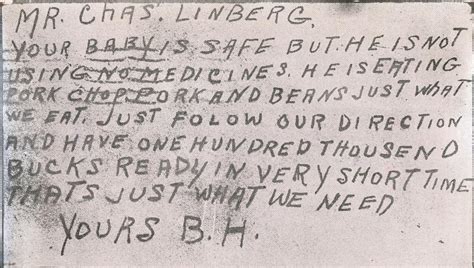 MR. CHAS. LINBERG.
YOUR BABY IS SAFE BUT HE IS NOT
USING NO MEDICINES. HE IS EATING
PORK CHOP PORK AND BEANS JUST WHAT
WE EAT. JUST FOLOW OUR DIRECTION
AND HAVE ONE HUNDRED THOUSEND
BUCKS READY IN VERY SHORT TIME
THATS JUST WHAT WE NEED
YOURS B.H.